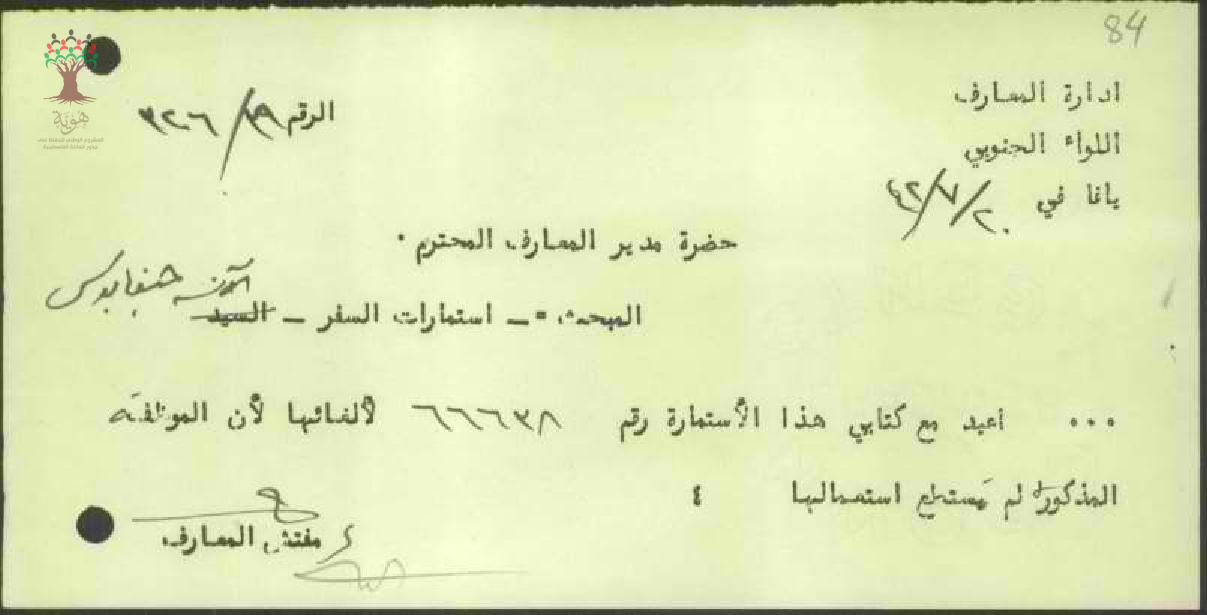 84
ادارة المعارف
اللواء الجنوبي
يافا في ٤٢/٧/٢٠
الرقم ١٩/٣٢٦
هوية
حضرة مدير المعارف المحترم ٠
المبحث :- استمارات السفر - السيد الآنسة
٠٠٠ اعيد مع كتابي هذا الأستمارة رقم ٦٦٦٣٨ لألغائها لأن الموظفة
المذكورة لم تستطع استعمالها ٤
مفتش المعارف